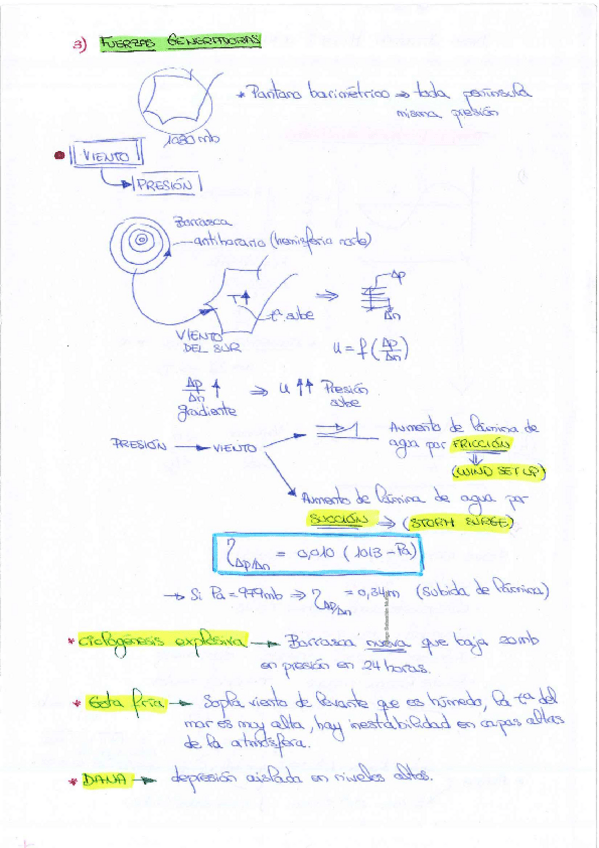 3) FUERZAS GENERADORAS
* Pantano barimétrico ⇒ toda península
misma presión
1020 mb
• VIENTO
PRESIÓN
Borrasca
antihorario (hemisferio norte)
T↑
tª sube
VIENTO
DEL SUR
⇒
Δp
Δn
u = f (Δp/Δn)
Δp/Δn ↑ ⇒ u ↑↑ Presión
sube
gradiente
PRESIÓN → VIENTO
Aumento de lámina de
agua por FRICCIÓN
(WIND SET UP)
Aumento de lámina de agua por
SUCCIÓN → (STORM SURGE)
η Δp/Δn = 0,010 (1013 - Pa)
→ Si Pa = 979mb ⇒ η Δp/Δn = 0,34m (subida de lámina)
* Ciclogénesis explosiva → Borrasca nueva que baja 20mb
en presión en 24 horas.
* Gota fría → Sopla viento de levante que es húmedo, la tª del
mar es muy alta, hay inestabilidad en capas altas
de la atmósfera.
* DANA → depresión aislada en niveles altos.